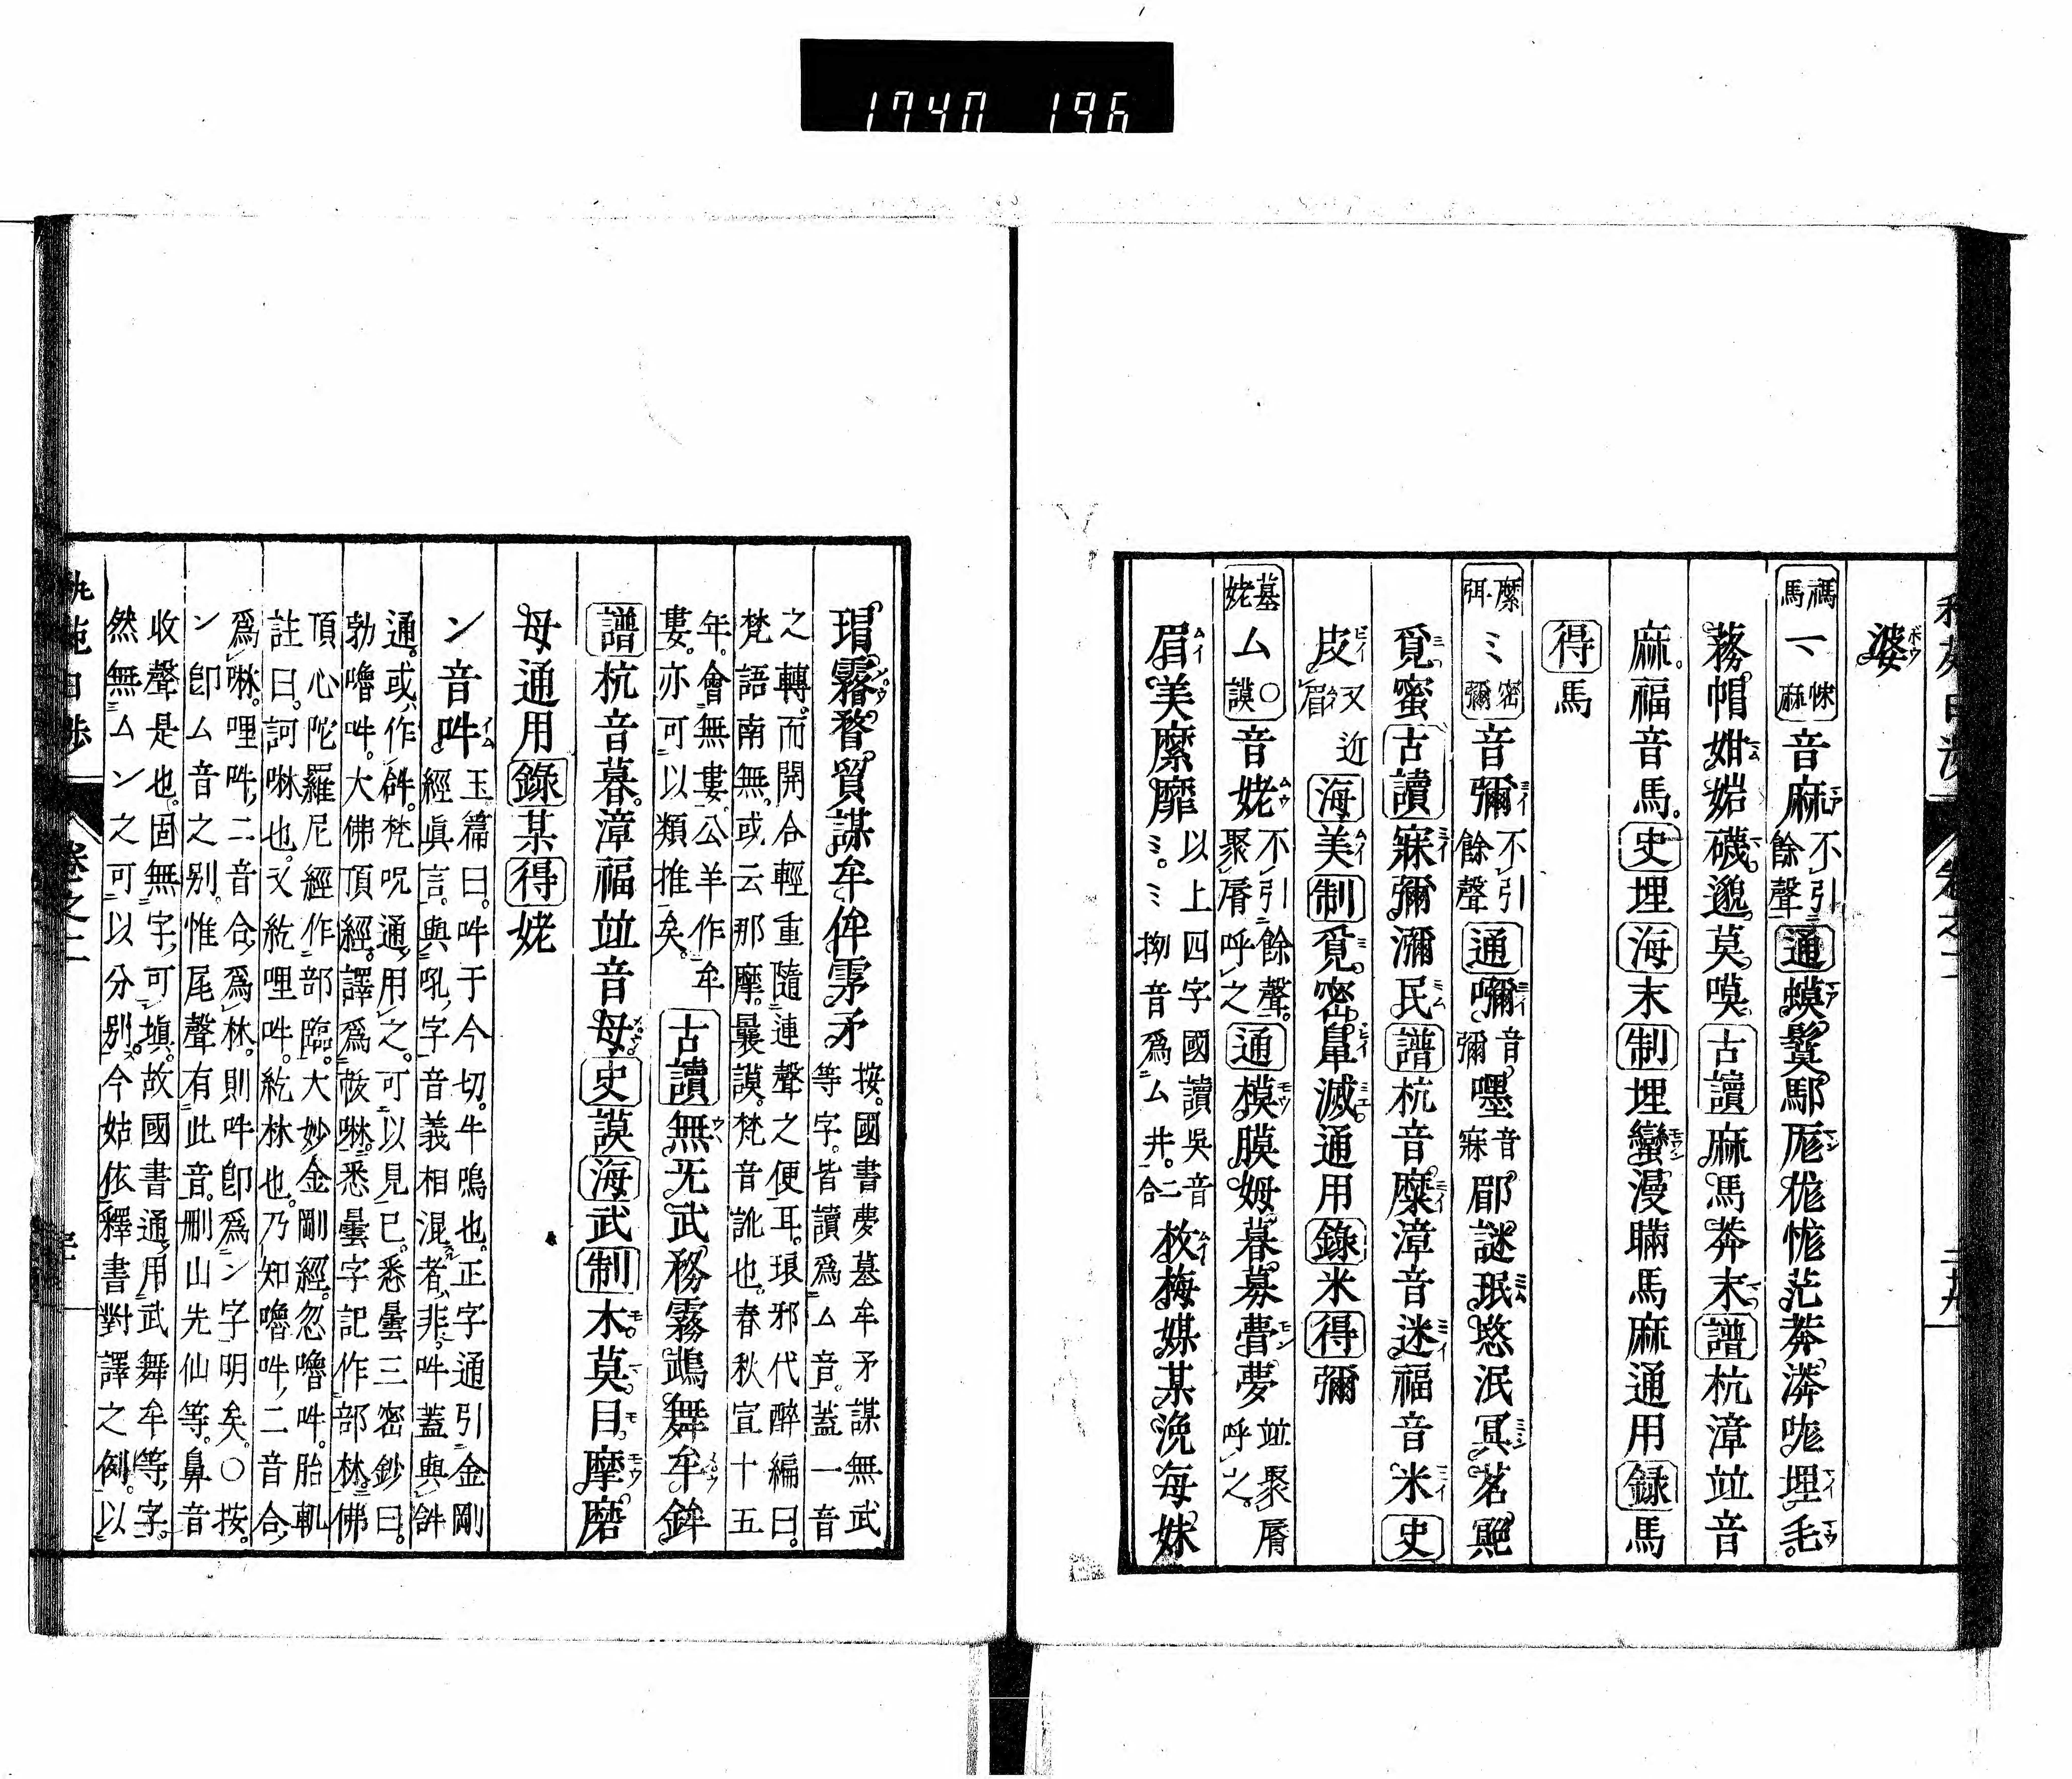 1740 196
婆ボウ
禡馬 マ 㑣麻 音麻マア 不引餘聲 通 蟆マア 鬕 駹 厖マン 㟌 恾 茫 莽 漭 咙 埋マイ 毛マウ
務 帽 姏マム 媌 礣マツ 邈 莫 嗼 古讀 麻 馬 莽 末マツ 譜 杭漳竝音
麻 福音馬 史 埋 海 末 制 埋 蠻モワン 漫 瞞 馬 麻 通用 録 馬
得 馬
縻弭 ミ 密彌 音彌ミイ 不引餘聲 通 嚩ミイ 音彌 嚜 音寐 郿 謎 珉ミム 愍 泯 冥ミン 茗 郒
覓ミツ 蜜 古讀 寐ミイ 彌 瀰 民ミム 譜 杭音糜ミイ 漳音迷ミイ 福音米ミイ 史
皮ビイ 又近眉ムイ 海 美ムイ 制 覓ミ 密 鼻ビイ 滅ミエ 通用 錄 米 得 彌
墓姥 ム 〇謨 音姥ムウ 不引餘聲聚脣呼之 通 模モウ 膜 姆 暮 募 瞢モン 夢 竝聚脣呼之
眉ムイ 美 縻 靡 以上四字國讀吳音ミ。ミ拗音爲ム井二合 枚ムイ 梅 媒 某 浼 每 妹
瑁 霧ンロウ 瞀 貿 謀 牟 侔 雺 矛 按。國書夢墓牟矛謀無武等字。皆讀爲ム音。蓋一音
之轉。而開合輕重隨連聲之便耳。琅邪代醉編曰。梵語南無。或云那摩。曩謨。梵音訛也。春秋宣十五
年。會無婁。公羊作牟婁。亦可以類推矣。 古讀 無ウ 无 武 務 霧 鵡 舞 牟 鉾
譜 杭音暮。漳福竝音母 史 謨 海 武 制 木モ 莫 目モ 摩モウ 磨
母 通用 錄 某 得 姥
ン 音吽イム 玉篇曰。吽于今切。牛鳴也。正字通引金剛經眞言。與吼字音義相混者非。吽蓋與𤙖
通。或作𤙖。梵呪通用之。可以見已。悉曇三密鈔曰。勃嚕吽。大佛頂經。譯爲㤥啉。悉曇字記作部林。佛
頂心陀羅尼經作部臨。大妙金剛經。忽嚕吽。胎軌註曰。訶啉也。又紇哩吽。紇林也。乃知嚕吽二音合
爲啉。哩吽二音合爲林。則吽卽爲ン字明矣。〇按。ン卽ム音之別。惟尾聲有此音。刪山先仙等。鼻音
收聲是也。固無字可塡。故國書通用武舞牟等字。然無ムン之可以分別。今姑依釋書對譯之例。以
卷之二